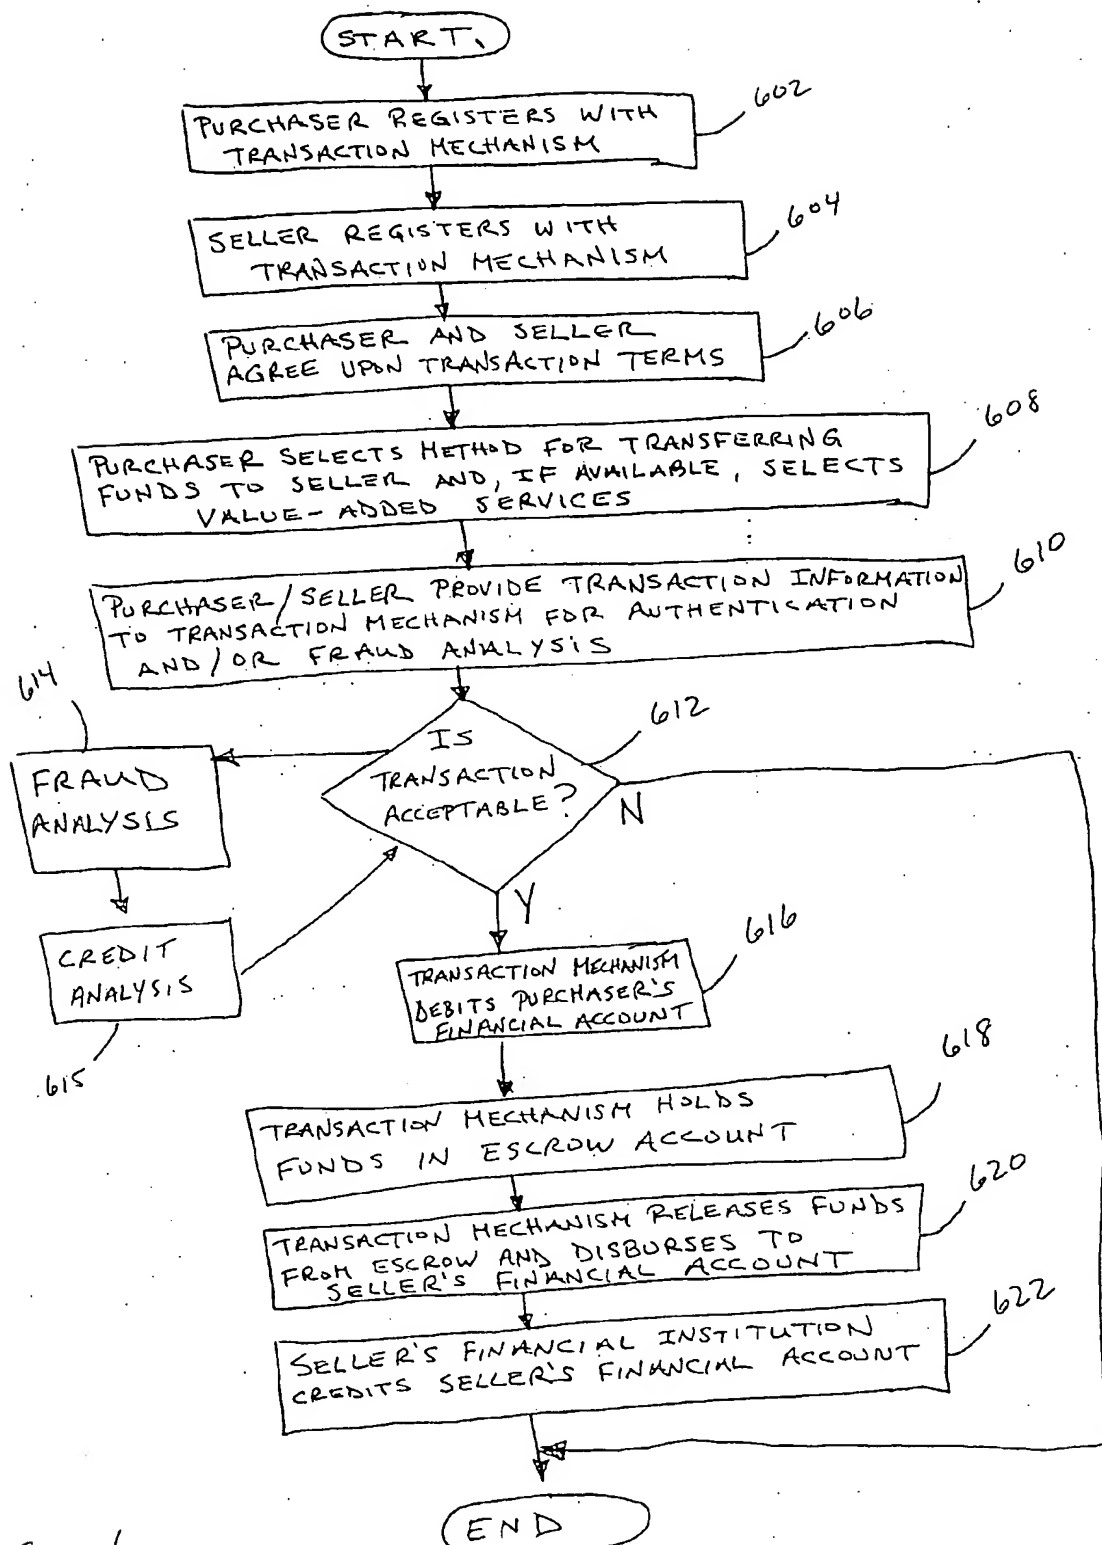 START.
602
PURCHASER REGISTERS WITH
TRANSACTION MECHANISM
604
SELLER REGISTERS WITH
TRANSACTION MECHANISM
606
PURCHASER AND SELLER
AGREE UPON TRANSACTION TERMS
608
PURCHASER SELECTS METHOD FOR TRANSFERRING
FUNDS TO SELLER AND, IF AVAILABLE, SELECTS
VALUE-ADDED SERVICES
610
PURCHASER/SELLER PROVIDE TRANSACTION INFORMATION
TO TRANSACTION MECHANISM FOR AUTHENTICATION
AND/OR FRAUD ANALYSIS
614
612
IS
TRANSACTION
ACCEPTABLE?
N
FRAUD
ANALYSIS
Y
CREDIT
ANALYSIS
615
616
TRANSACTION MECHANISM
DEBITS PURCHASER'S
FINANCIAL ACCOUNT
618
TRANSACTION MECHANISM HOLDS
FUNDS IN ESCROW ACCOUNT
620
TRANSACTION MECHANISM RELEASES FUNDS
FROM ESCROW AND DISBURSES TO
SELLER'S FINANCIAL ACCOUNT
622
SELLER'S FINANCIAL INSTITUTION
CREDITS SELLER'S FINANCIAL ACCOUNT
END